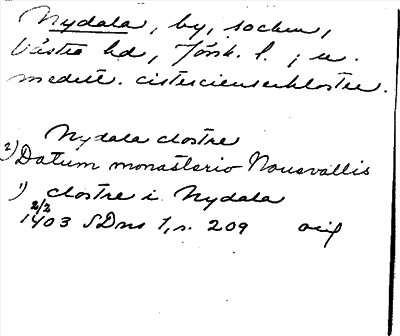 Nydala, by, socken,
Västra hd, Jönk. l.; m.
medelt. cistercienserkloster.
Nydala clostre
2) Datum monasterio Nouevallis
1) clostre i Nydala
2/2
1403 SDns 1, s. 209 orig